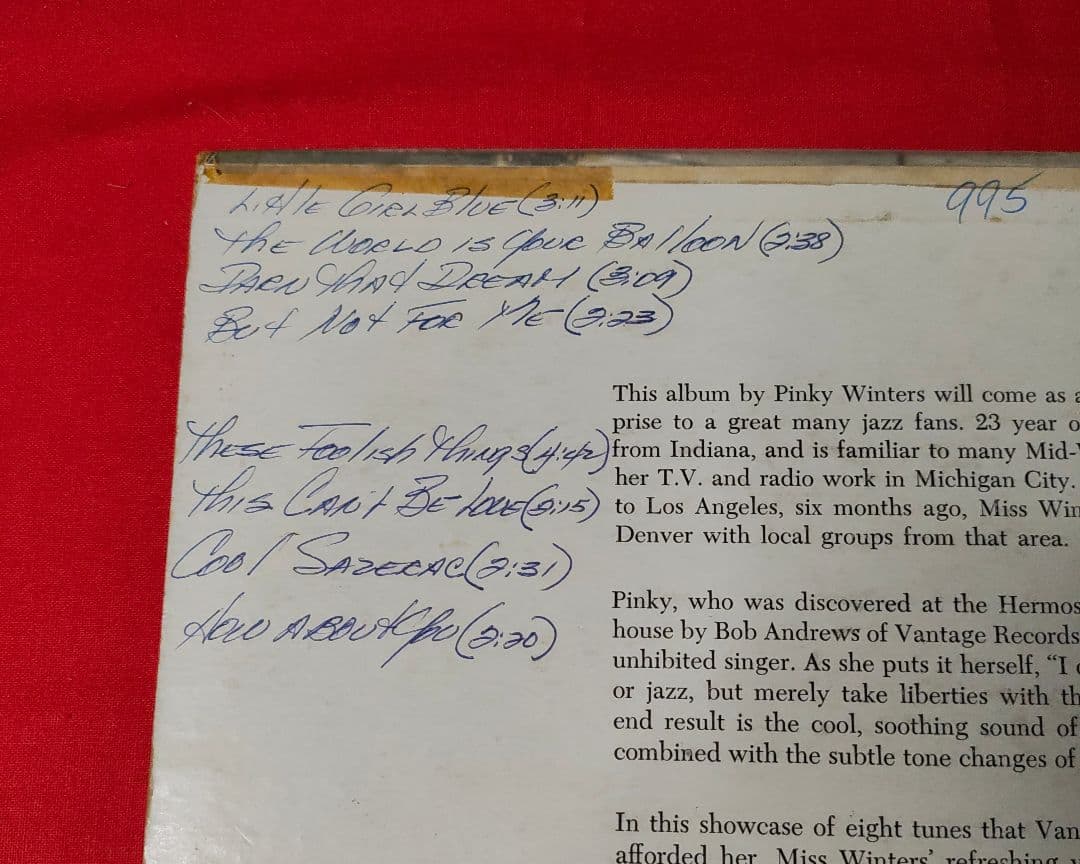 Little Girl Blue (3:11)
995
The World is Your Balloon (2:38)
Darn That Dream (3:09)
But Not For Me (2:23)
These Foolish Things (4:42)
This Can't Be Love (2:15)
Cool Sazerac (2:31)
How About You (2:20)
This album by Pinky Winters will come as a
prise to a great many jazz fans. 23 year o
from Indiana, and is familiar to many Mid-
her T.V. and radio work in Michigan City.
to Los Angeles, six months ago, Miss Win
Denver with local groups from that area.
Pinky, who was discovered at the Hermos
house by Bob Andrews of Vantage Records
unhibited singer. As she puts it herself, “I
or jazz, but merely take liberties with th
end result is the cool, soothing sound of
combined with the subtle tone changes of
In this showcase of eight tunes that Van
afforded her Miss Winters’ refreshing